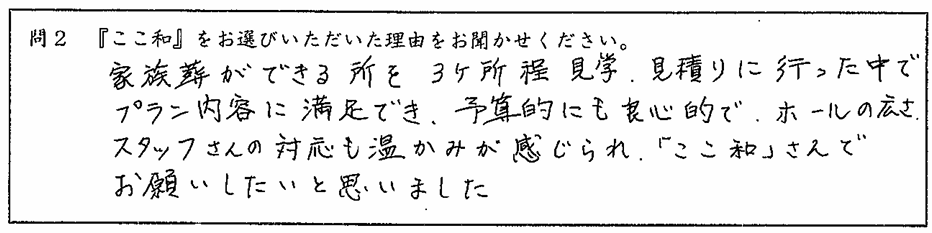 問2 『ここ和』をお選びいただいた理由をお聞かせください。
家族葬ができる所を 3ケ所程 見学、見積りに行った中で
プラン内容に満足でき、予算的にも良心的で、ホールの広さ、
スタッフさんの対応も温かみが感じられ、「ここ和」さんで
お願いしたいと思いました